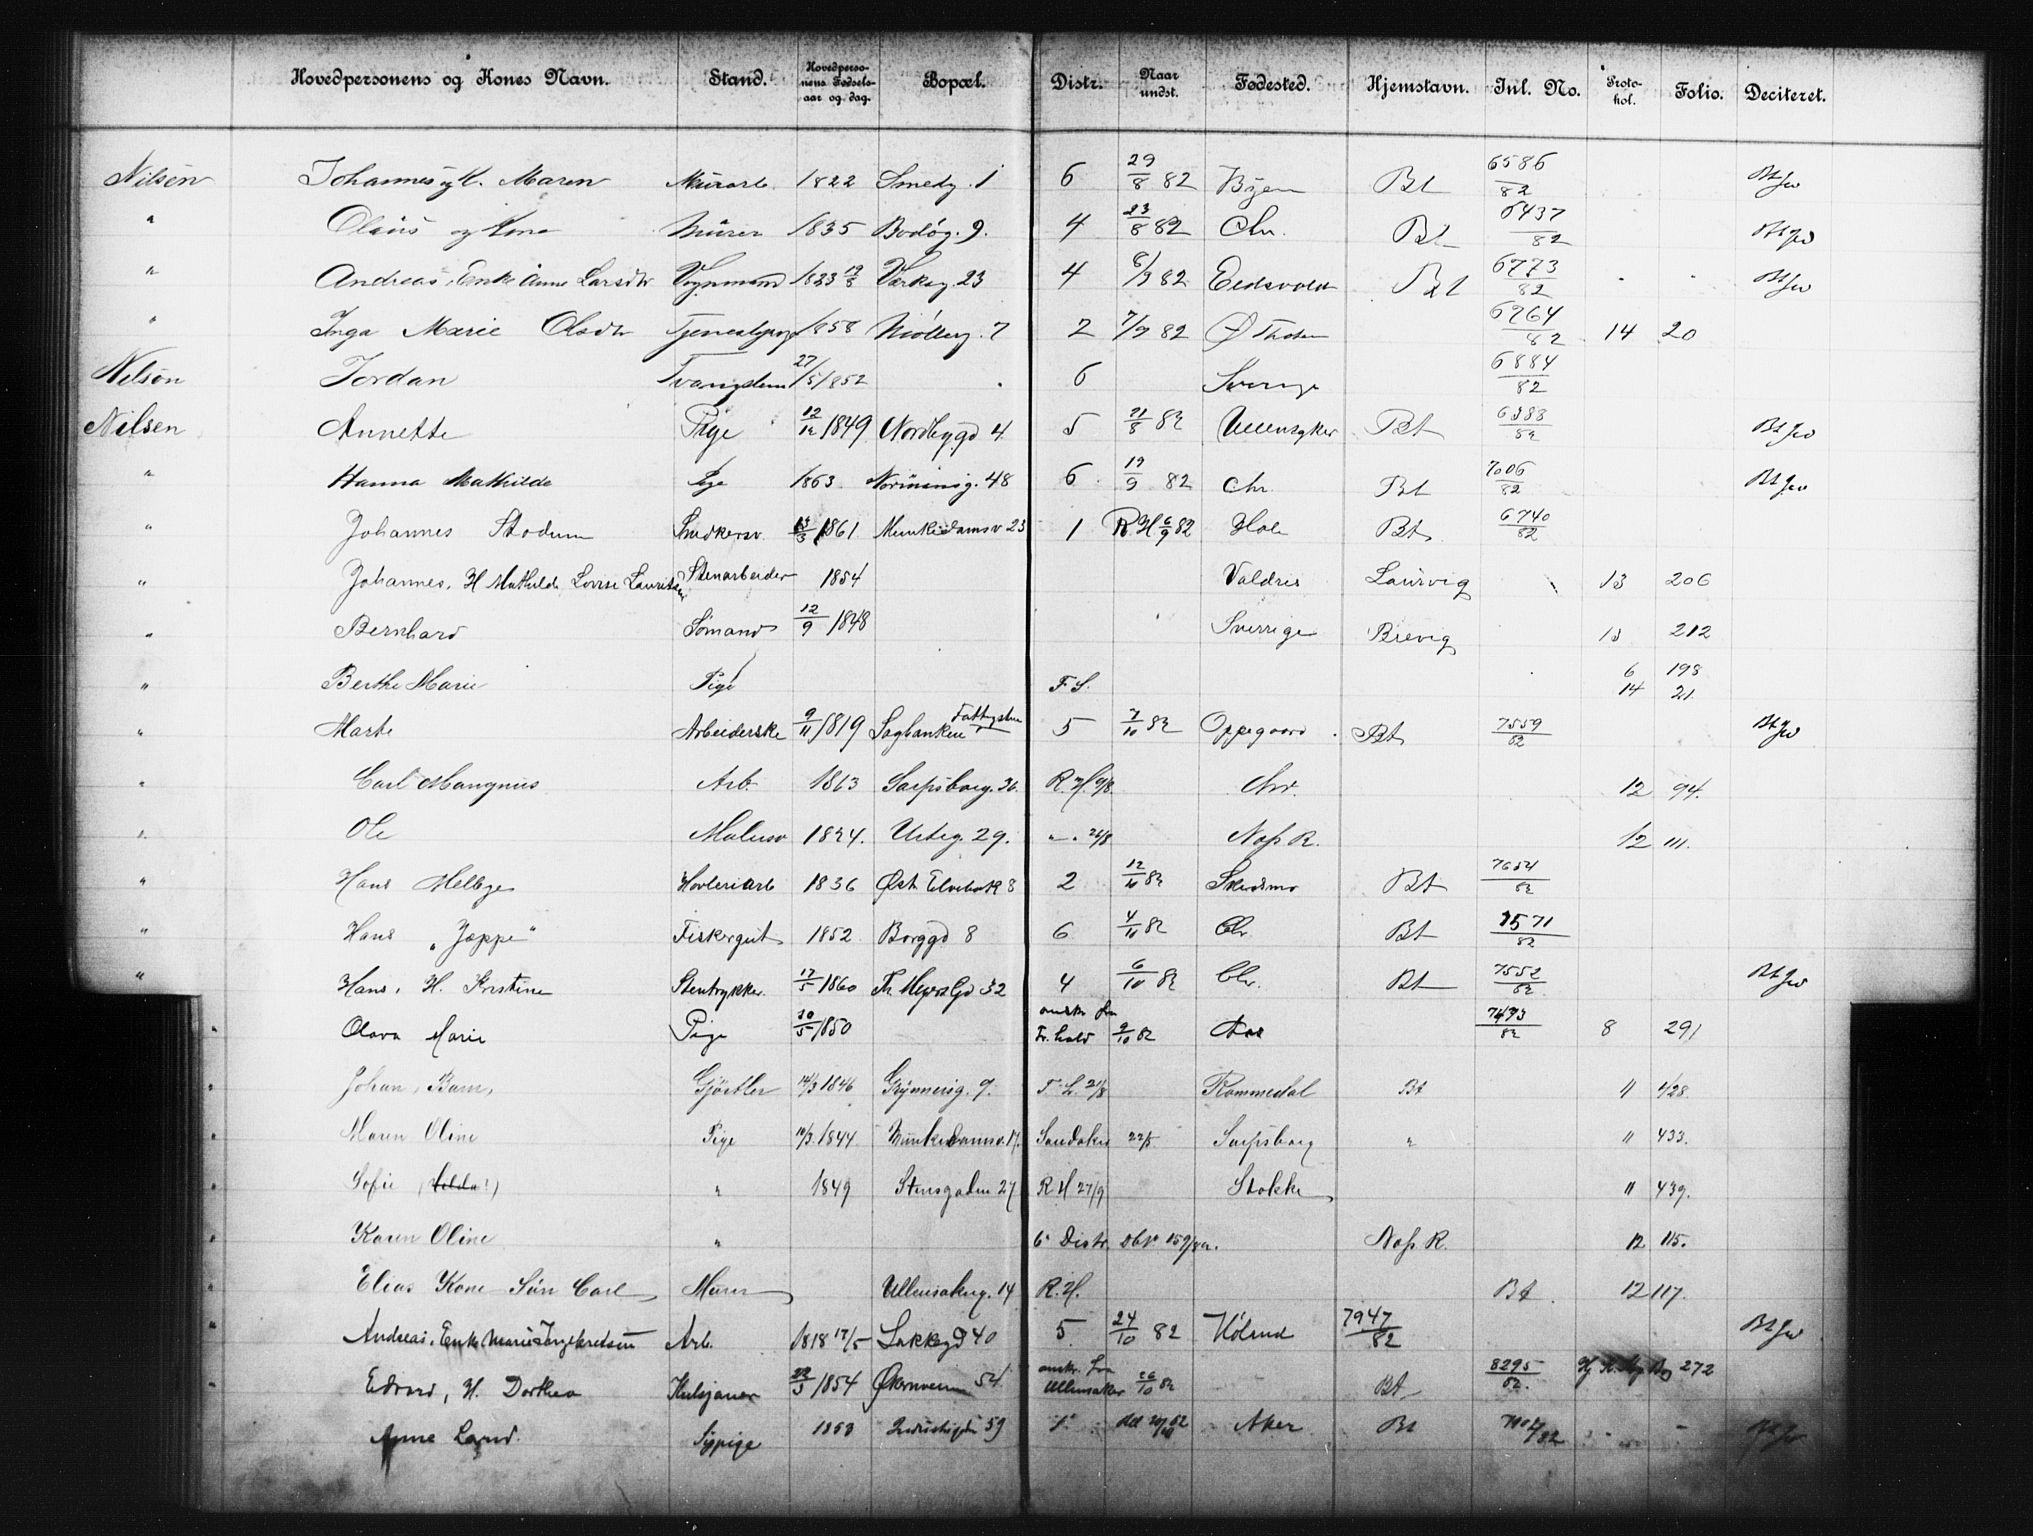 Hovedpersonens og Kones Navn. Stand. Hovedperso-nens Fødsels-aar og dag. Bopæl. Distr. Naar undst. Fødested. Hjemstavn. Inl. No. Proto-kol. Folio. Deciteret.
Nilsen Johannes og K. Maren Murarb. 1822 Smedg. 1 6 29/8 82 Byen Bt 6586/82 Bt
" Olaus og Kone Murer 1835 Bodøg. 9. 4 23/8 82 Chr. Bt 6437/82
" Andreas, Enke Anne Larsdtr Vognmand 1823 Værksg. 23 4 6/9 82 Eidsvold Bt 6773/82 Bt
" Inga Marie Olsdtr Tjenestepige 1858 Mølleg. 7 2 7/9 82 Ø Thoten 6764/82 14 20
Nilson Jordan Tvangslem 27/5 1852 6 Sverige 6884/82
Nilsen Annette Pige 12/12 1849 Nordbygd 4. 5 21/8 82 Ullensaker Bt 6388/82 Bt
" Hanna Mathilde Pige 1863 Normansg. 48 6 19/9 82 Chr. Bt 7006/82 Bt
" Johannes Stodum Snedkersv. 13/3 1861 Munkedamsv 23 1 R.H 6/9 82 Hole Bt 6740/82
" Johannes, H Mathilde Lovise Lauritsen Stenarbeider 1854 Valdres Laurvig 13 206
" Bernhard Sømand 12/9 1848 Sverrige Brevig 13 212
" Berthe Marie Pige F. S. 6 198
14 21.
" Marte Arbeiderske 9/11 1819 Sagbanken Fattigstuen 5 7/10 82 Oppegaard Bt 7559/82 Bt
" Carl Mangnus Arb. 1863 Sarpsborg. 36. R. H. 9/8 Chr. 12 94.
" Ole Malersv 1824. Urteg. 29. " 24/8 Næs R. 12 111.
" Hans Melbye Høvleriarb 1836 Øst Elvebak 8 2 12/10 82 Skedsmo Bt 7654/82
" Hans „Jeppe" Fiskergut 1852 Borggd 8 6 4/11 82 Chr. Bt 7571/82
" Hans, H. Kristine Stentrykker. 17/5 1860 Th Meyers Gd 32 4 6/10 82 Chr. Bt 7552/82 Bt
" Olava Marie Pige 30/5 1850 ansk. fra Fr.hald 9/10 82 Aas 7473/82 8 291
" Johan, Barn, Gjørtler 14/3 1846 Grynnersg. 9. F. L. 21/8 Rommedal Bt 11 428.
" Maren Oline Pige 10/3. 1844. Munkedamsv. 17. Sandaker 22/8 Sarpsborg " 11 433.
" Sofie (Hilda!) " 1849 Stensgaden 27 R H 27/9 Stokke 11 439.
" Karen Oline " 6 Distr. Næs R. 12 115.
" Elias Kone Søn Carl Murer Ullensakerg. 14 R. H. Bt 12 117.
" Andreas, Enke Marie Ingebretsen Arb. 1818 17/5 Lakkegd 40 5 24/10 82 Høland 7947/82 Bt
" Edvard, H. Dorthea Kulsjauer 22/3 1854 Økernveien 54 ansk. fra Ullensaker 26/10 82 Bt 8295/82 272
Anne Lamd. Sypige 1853 59 1 Aker Bt